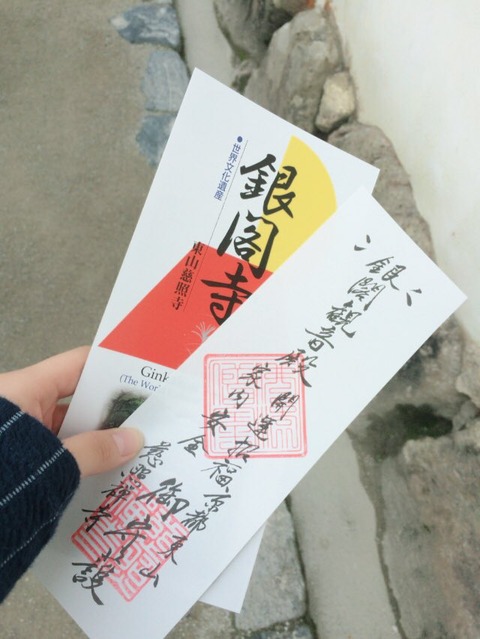 ●世界文化遺産
銀閣寺
東山慈照寺
Gink
(The Wor
銀閣観音殿
開運招福
家内安全
御守護
京都東山
慈照禅寺